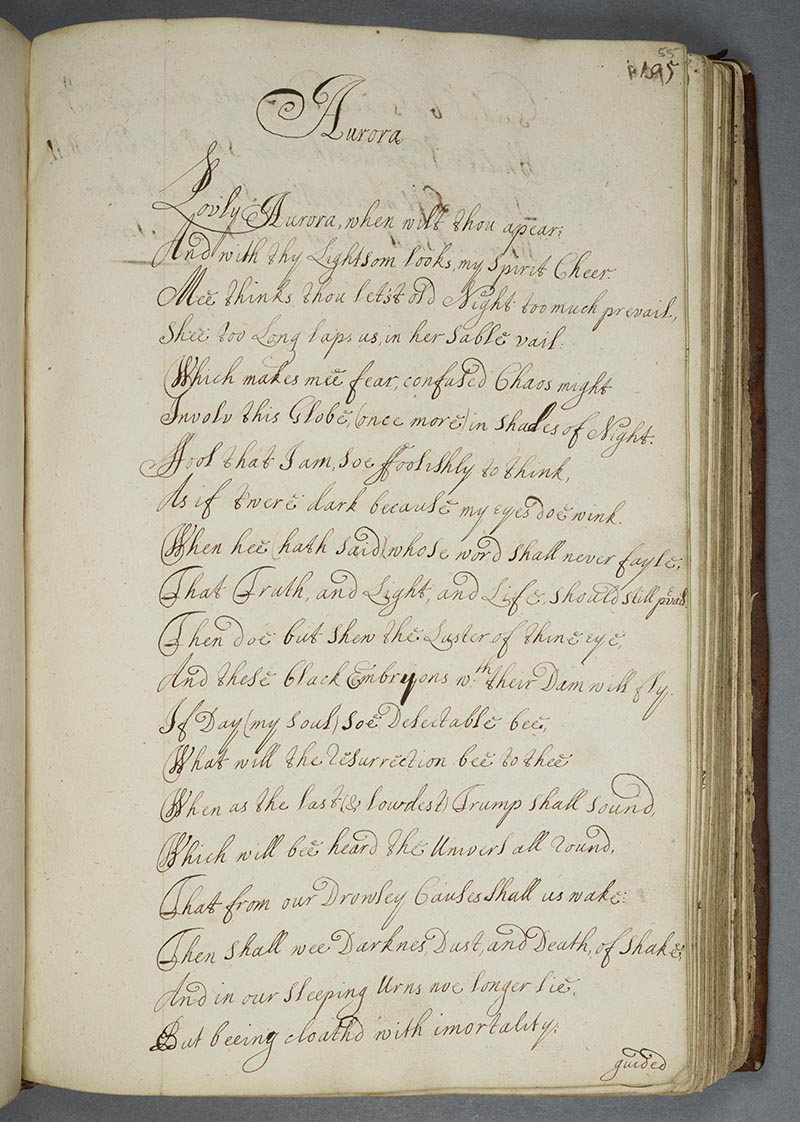 55
p195
Aurora
Lovly Aurora, when wilt thou apear;
And with thy Lightsom looks, my Spirit Cheer
Mee thinks thou letst old Night too much prevail,
Shee too Long laps us, in her sable vail.
Which makes mee fear, confused Chaos might
Involv this Globe, (once more) in shades of Night.
Ffool that I am, soe ffoolishly to think,
As if twere dark because my eyes doe wink.
When hee (hath said) whose word shall never fayle,
That Truth, and Light, and Life, should still pvail.
Then doe but shew the Luster of thine eye,
And these black Embryons wth their Dam will fly.
If Day (my soul) soe Delectable bee,
What will the resurrection bee to thee
When as the last (& lowdest) Trump shall sound,
Which will bee heard the Univers all round,
That from our Drowsey Causes shall us wake:
Then shall wee Darknes, Dust, and Death, of shake,
And in our sleeping Urns noe longer lie,
But beeing cloathd with imortality;
guided